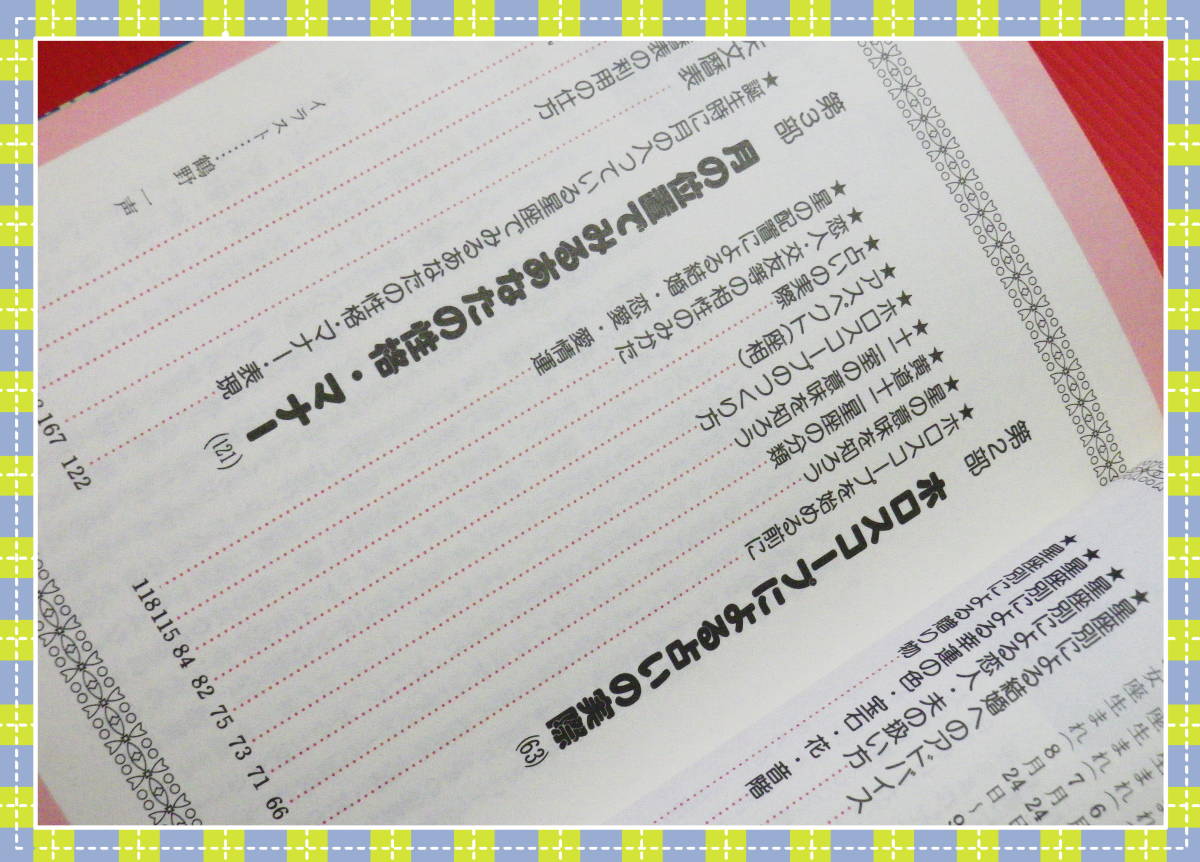 生まれ(6月
座生まれ(7月24日
女座生まれ(8月24日〜
★星座別による結婚へのアドバイス
★星座別による恋人・夫の扱い方
★星座別による幸運の色・宝石・花・音階
★星座別による贈り物
第2部 ホロスコープによる占いの実際 (63)
★ホロスコープを始める前に
★星の意味を知ろう 66
★黄道十二星座の分類 71
★十二室の意味を知ろう 73
★ホロスコープのつくり方 75
★アスペクト(座相) 82
★占いの実際 84
★恋人・交友等の相性のみかた 115
★星の配置による結婚・恋愛・愛情運 118
第3部 月の位置でみるあなたの性格・マナー (121)
★誕生時に月の入っている星座でみるあなたの性格・マナー・表現 122
天文暦表 167
の利用の仕方
イラスト……鶴野一声